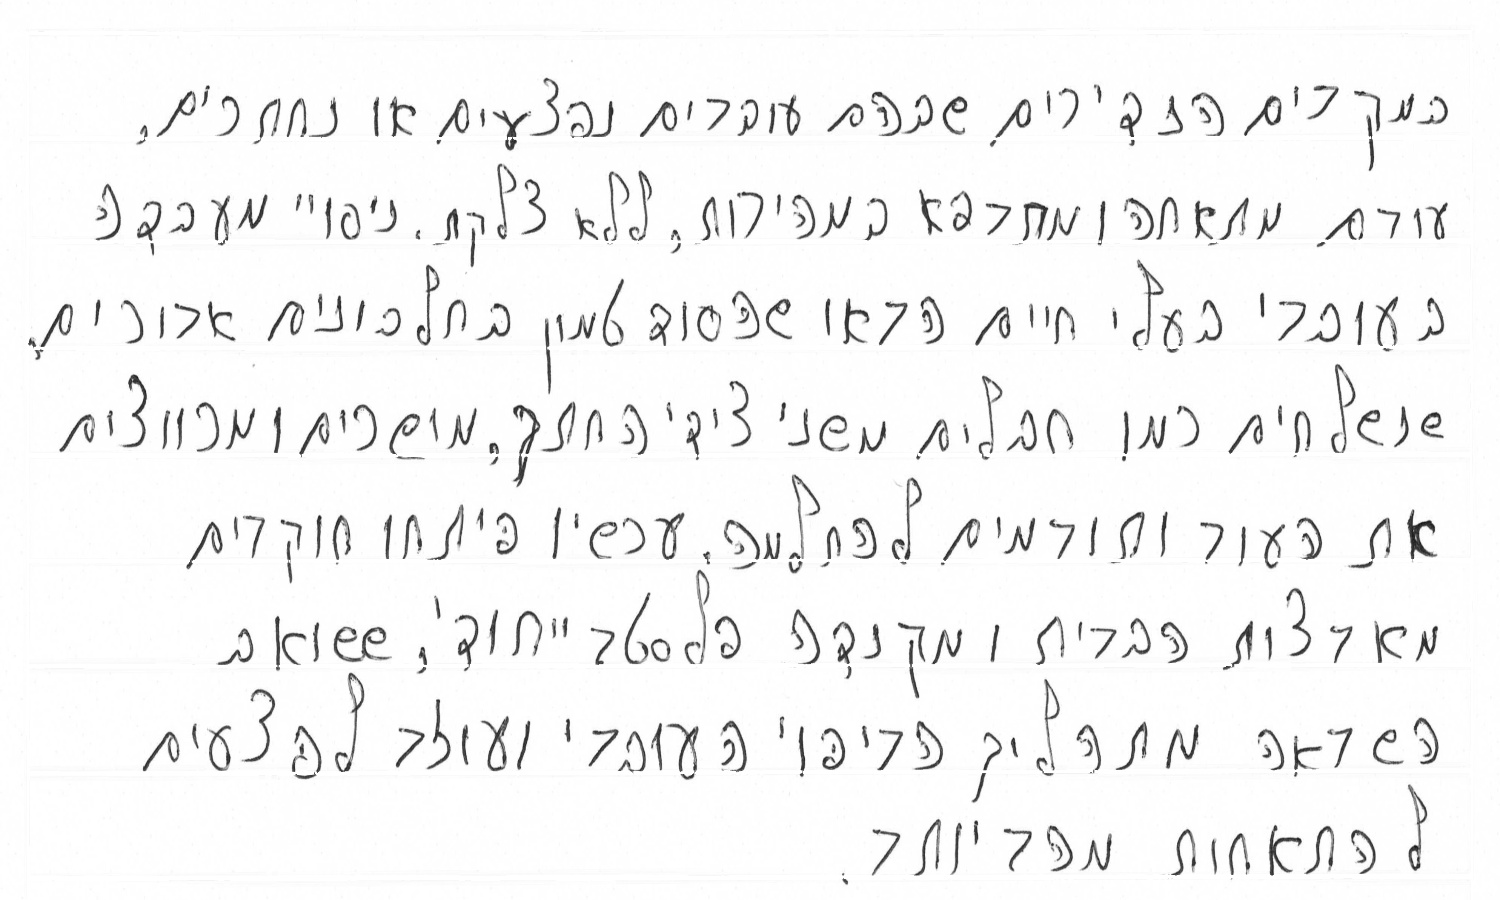 במקרים הנדירים שבהם עוברים נפצעים או נחתכים,
עורם מתאחה ומתרפא במהירות, ללא צלקת. ניסויי מעבדה
בעוברי בעלי חיים הראו שהסוד טמון בחלבונים ארוכים,
שנשלחים כמו חבלים משני צידי החתך, מושכים ומכווצים
את העור ותורמים להחלמה. עכשיו פיתחו חוקרים
מארצות הברית ומקנדה פלסטר ייחודי, ששואב
השראה מתהליך הריפוי העוברי ועוזר לפצעים
להתאחות מהר יותר.